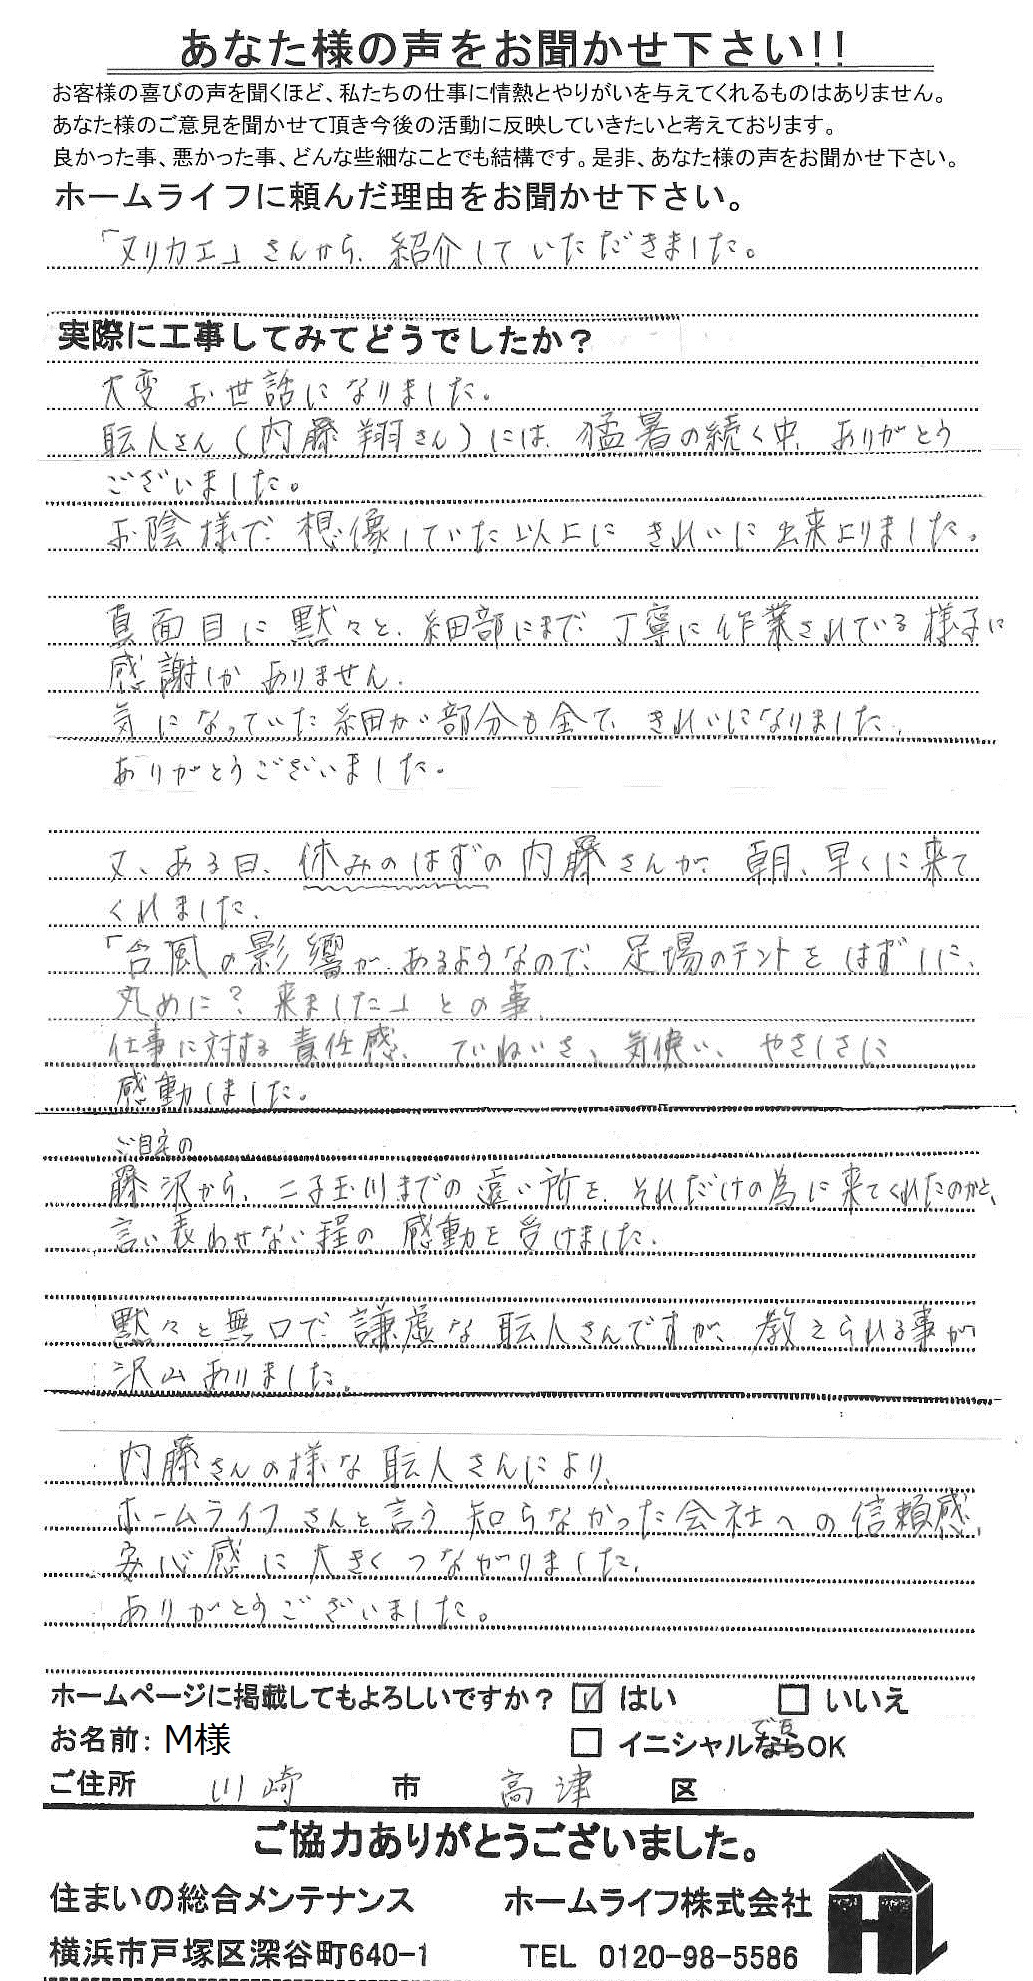 あなた様の声をお聞かせ下さい!!
お客様の喜びの声を聞くほど、私たちの仕事に情熱とやりがいを与えてくれるものはありません。
あなた様のご意見を聞かせて頂き今後の活動に反映していきたいと考えております。
良かった事、悪かった事、どんな些細なことでも結構です。是非、あなた様の声をお聞かせ下さい。
ホームライフに頼んだ理由をお聞かせ下さい。
「ヌリカエ」さんから、紹介していただきました。
実際に工事してみてどうでしたか?
大変 お世話になりました。
職人さん(内藤 翔さん)には、猛暑の続く中、ありがとう
ございました。
お陰様で 想像していた以上に きれいに出来上りました。
真面目に黙々と、細部にまで、丁寧に作業されている様子に
感謝しか ありません。
気になっていた細かい部分も全て、きれいになりました。
ありがとうございました。
又、ある日、休みのはずの内藤さんが、朝、早くに来て
くれました。
「台風の影響が、あるようなので、足場のテントを はずしに、
丸めに? 来ました」との事、
仕事に対する 責任感、ていねいさ、気使い、やさしさに
感動しました。
ご自宅の
藤沢から、二子玉川までの遠い所を、それだけの為に来てくれたのかと、
言い表わせない程の 感動を受けました。
黙々と無口で 謙虚な 職人さんですが、教えられる事が
沢山ありました。
内藤さんの様な職人さんにより、
ホームライフさんと言う 知らなかった会社への信頼感、
安心感に大きくつながりました。
ありがとうございました。
ホームページに掲載してもよろしいですか? ☑ はい □ いいえ
お名前: M様 □ イニシャルなら でも OK
ご住所 川崎 市 高津 区
ご協力ありがとうございました。
住まいの総合メンテナンス ホームライフ株式会社
横浜市戸塚区深谷町640-1 TEL 0120-98-5586